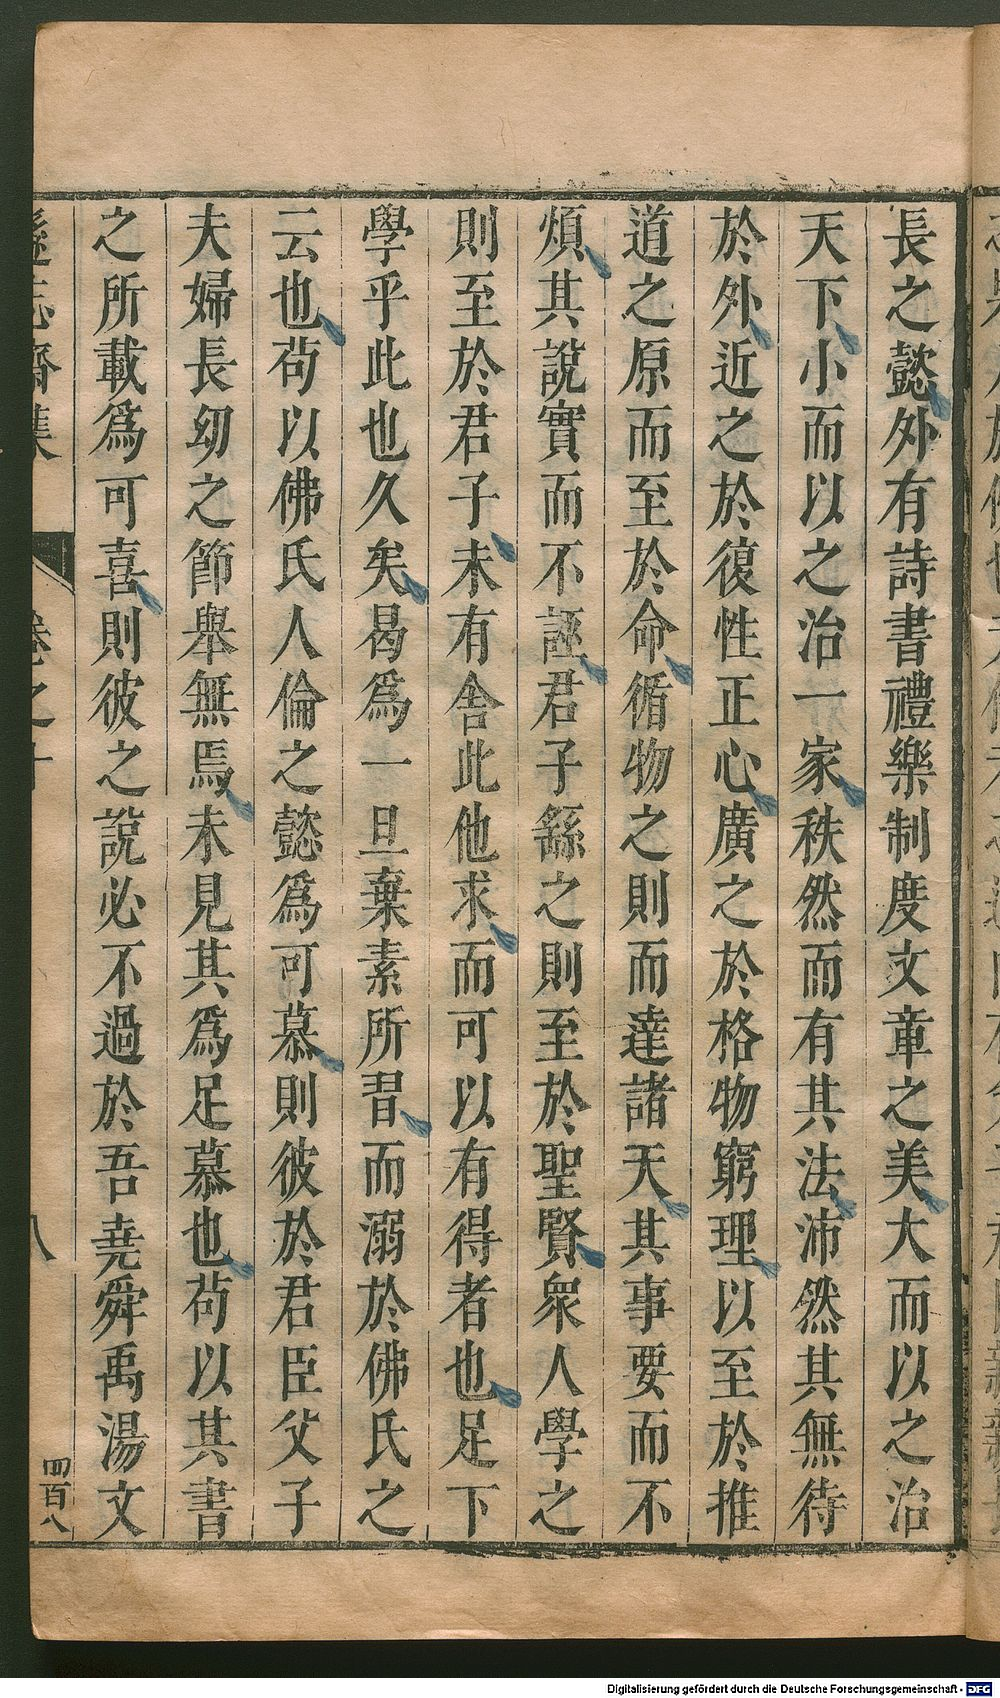 長之懿外有詩書禮樂制度文章之美大而以之治
天下小而以之治一家秩然而有其法沛然其無待
於外近之於復性正心廣之於格物窮理以至於推
道之原而至於命循物之則而達諸天其事要而不
煩其說實而不誣君子繇之則至於聖賢衆人學之
則至於君子未有舍此他求而可以有得者也足下
學乎此也久矣曷爲一旦棄素所習而溺於佛氏之
云也苟以佛氏人倫之懿爲可慕則彼於君臣父子
夫婦長幼之節舉無焉未見其爲足慕也苟以其書
之所載爲可喜則彼之說必不過於吾堯舜禹湯文
遜志齋集 卷之十 八 四百八
Digitalisierung gefördert durch die Deutsche Forschungsgemeinschaft - DFG